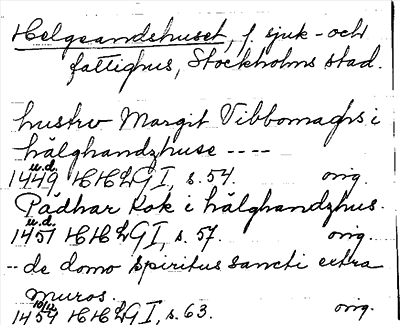 Helgeandshuset, f. sjuk- och
fattighus, Stockholms stad.
hustrv Margit Vibbomaghs i
hälghandzhuse ----
u.d.
1449 HHLG I, s. 54. orig.
Pädhar kok i hälghandzhus.
u.d.
1451 HHLG I, s. 57. orig.
-- de domo spiritus sancti extra
muros.
1459 HHLG I, s. 63. orig.